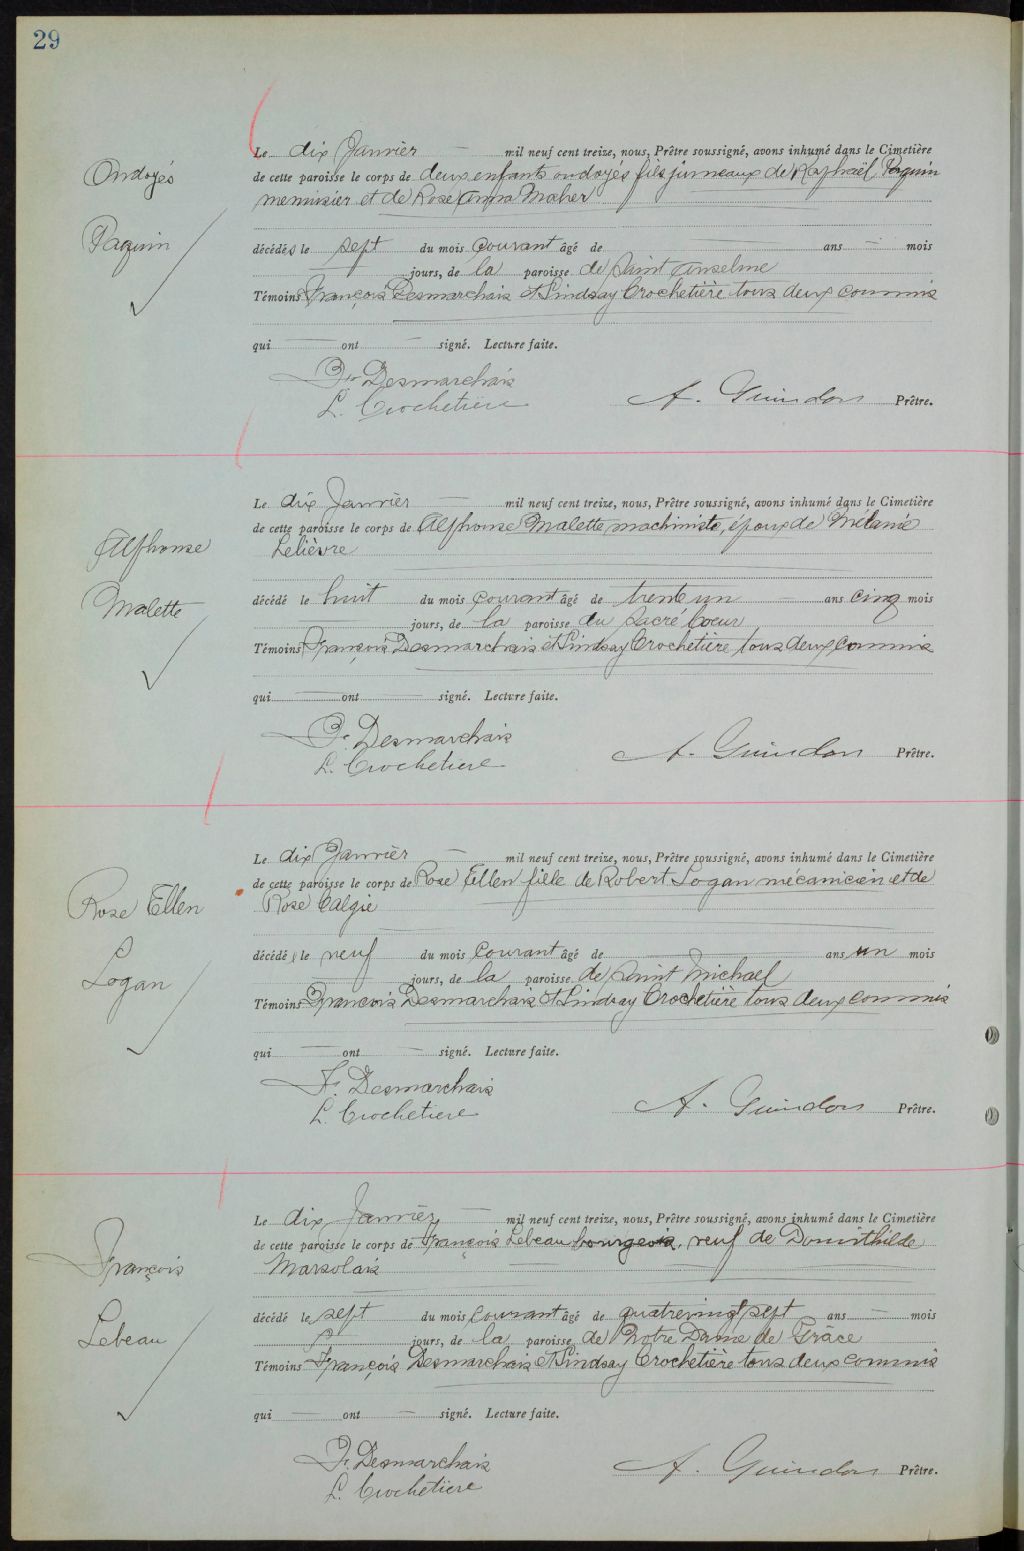 29
Ondoyés
Paquin
Le dix Janvier — mil neuf cent treize, nous, Prêtre soussigné, avons inhumé dans le Cimetière
de cette paroisse le corps de deux enfants ondoyés fils jumeaux de Raphaël Paquin
menuisier et de Rose Anna Maher
décédés le sept du mois courant âgé de — ans — mois
— jours, de la paroisse de Saint Anselme
Témoins François Desmarchais et Lindsay Crochetière tous deux commis
qui — ont — signé. Lecture faite.
Fr. Desmarchais
L. Crochetiere
A. Guindon Prêtre.
Alphonse
Malette
Le dix Janvier — mil neuf cent treize, nous, Prêtre soussigné, avons inhumé dans le Cimetière
de cette paroisse le corps de Alphonse Malette, machiniste, époux de Mélanie
Lelièvre
décédé le huit du mois courant âgé de trente un — ans cinq mois
— jours, de la paroisse du Sacré Coeur
Témoins François Desmarchais et Lindsay Crochetière tous deux commis
qui — ont — signé. Lecture faite.
F. Desmarchais
L. Crochetiere
A. Guindon Prêtre.
Rose Ellen
Logan
Le dix Janvier — mil neuf cent treize, nous, Prêtre soussigné, avons inhumé dans le Cimetière
de cette paroisse le corps de Rose Ellen fille de Robert Logan mécanicien et de
Rose Calgie
décédé le neuf du mois courant âgé de — ans un mois
— jours, de la paroisse de Saint Michael
Témoins François Desmarchais et Lindsay Crochetière tous deux commis
qui — ont — signé. Lecture faite.
F. Desmarchais
L. Crochetiere
A. Guindon Prêtre.
François
Lebeau
Le dix Janvier — mil neuf cent treize, nous, Prêtre soussigné, avons inhumé dans le Cimetière
de cette paroisse le corps de François Lebeau bourgeois, veuf de Domithilde
Marsolais
décédé le sept du mois courant âgé de quatrevingt sept ans — mois
jours, de la paroisse de Notre Dame de Grâce
Témoins François Desmarchais et Lindsay Crochetière tous deux commis
qui — ont — signé. Lecture faite.
F. Desmarchais
L. Crochetiere
A. Guindon Prêtre.